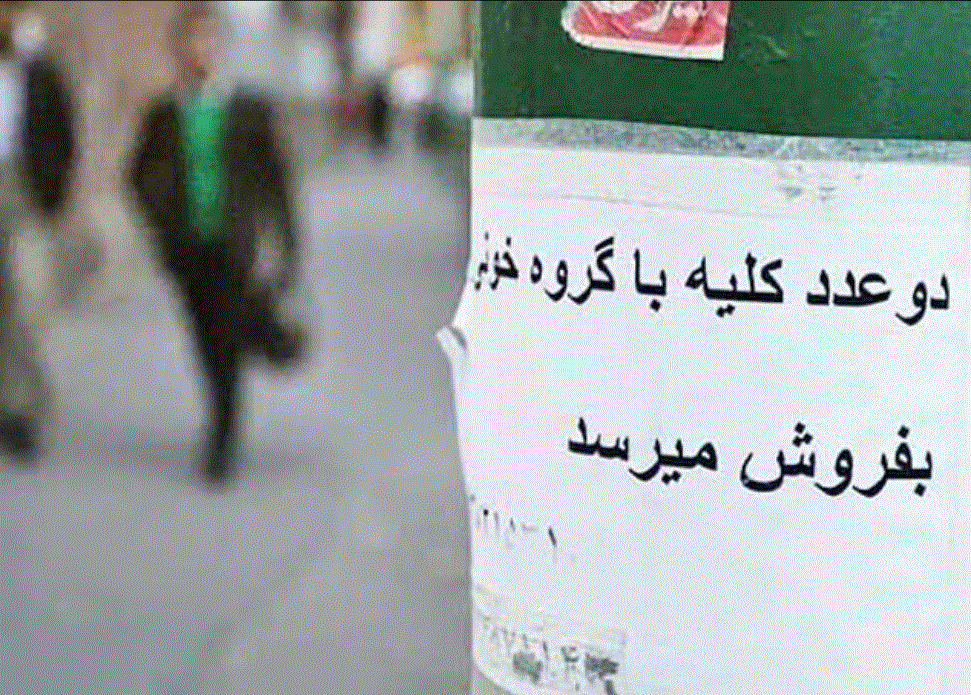 دو عدد کلیه با گروه خونی
بفروش میرسد